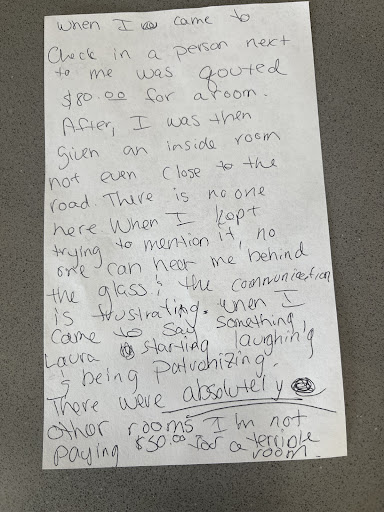 When I came to
Check in a person next
to me was qouted
$80.00 for a room.
After, I was then
given an inside room
not even close to the
road. There is no one
here when I kept
trying to mention it, no
one can hear me behind
the glass & the communication
is frustrating. When I
came to say something,
Laura starting laughing
& being patronizing.
There were absolutely
other rooms I'm not
paying $50.00 for a terrible
room.